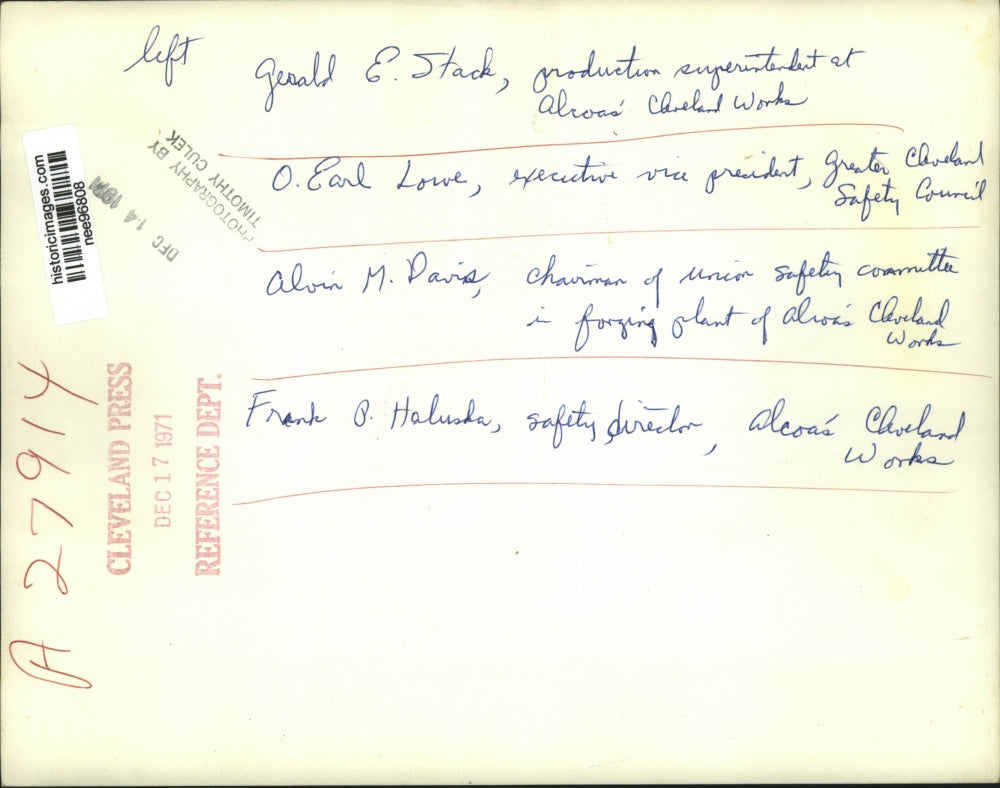 left
Gerald E. Stack, production superintendent at
Alcoas' Cleveland Works
O. Earl Lowe, executive vice president, Greater Cleveland
Safety Council
Alvin M. Davis, chairman of union safety committee
in forging plant of Alcoa's Cleveland
Works
Frank P. Haluska, safety director, Alcoa's Cleveland
Works
historicimages.com
nee96808
PHOTOGRAPHY BY
TIMOTHY CULEK
DEC 14 1971
CLEVELAND PRESS
DEC 17 1971
REFERENCE DEPT.
A 27914